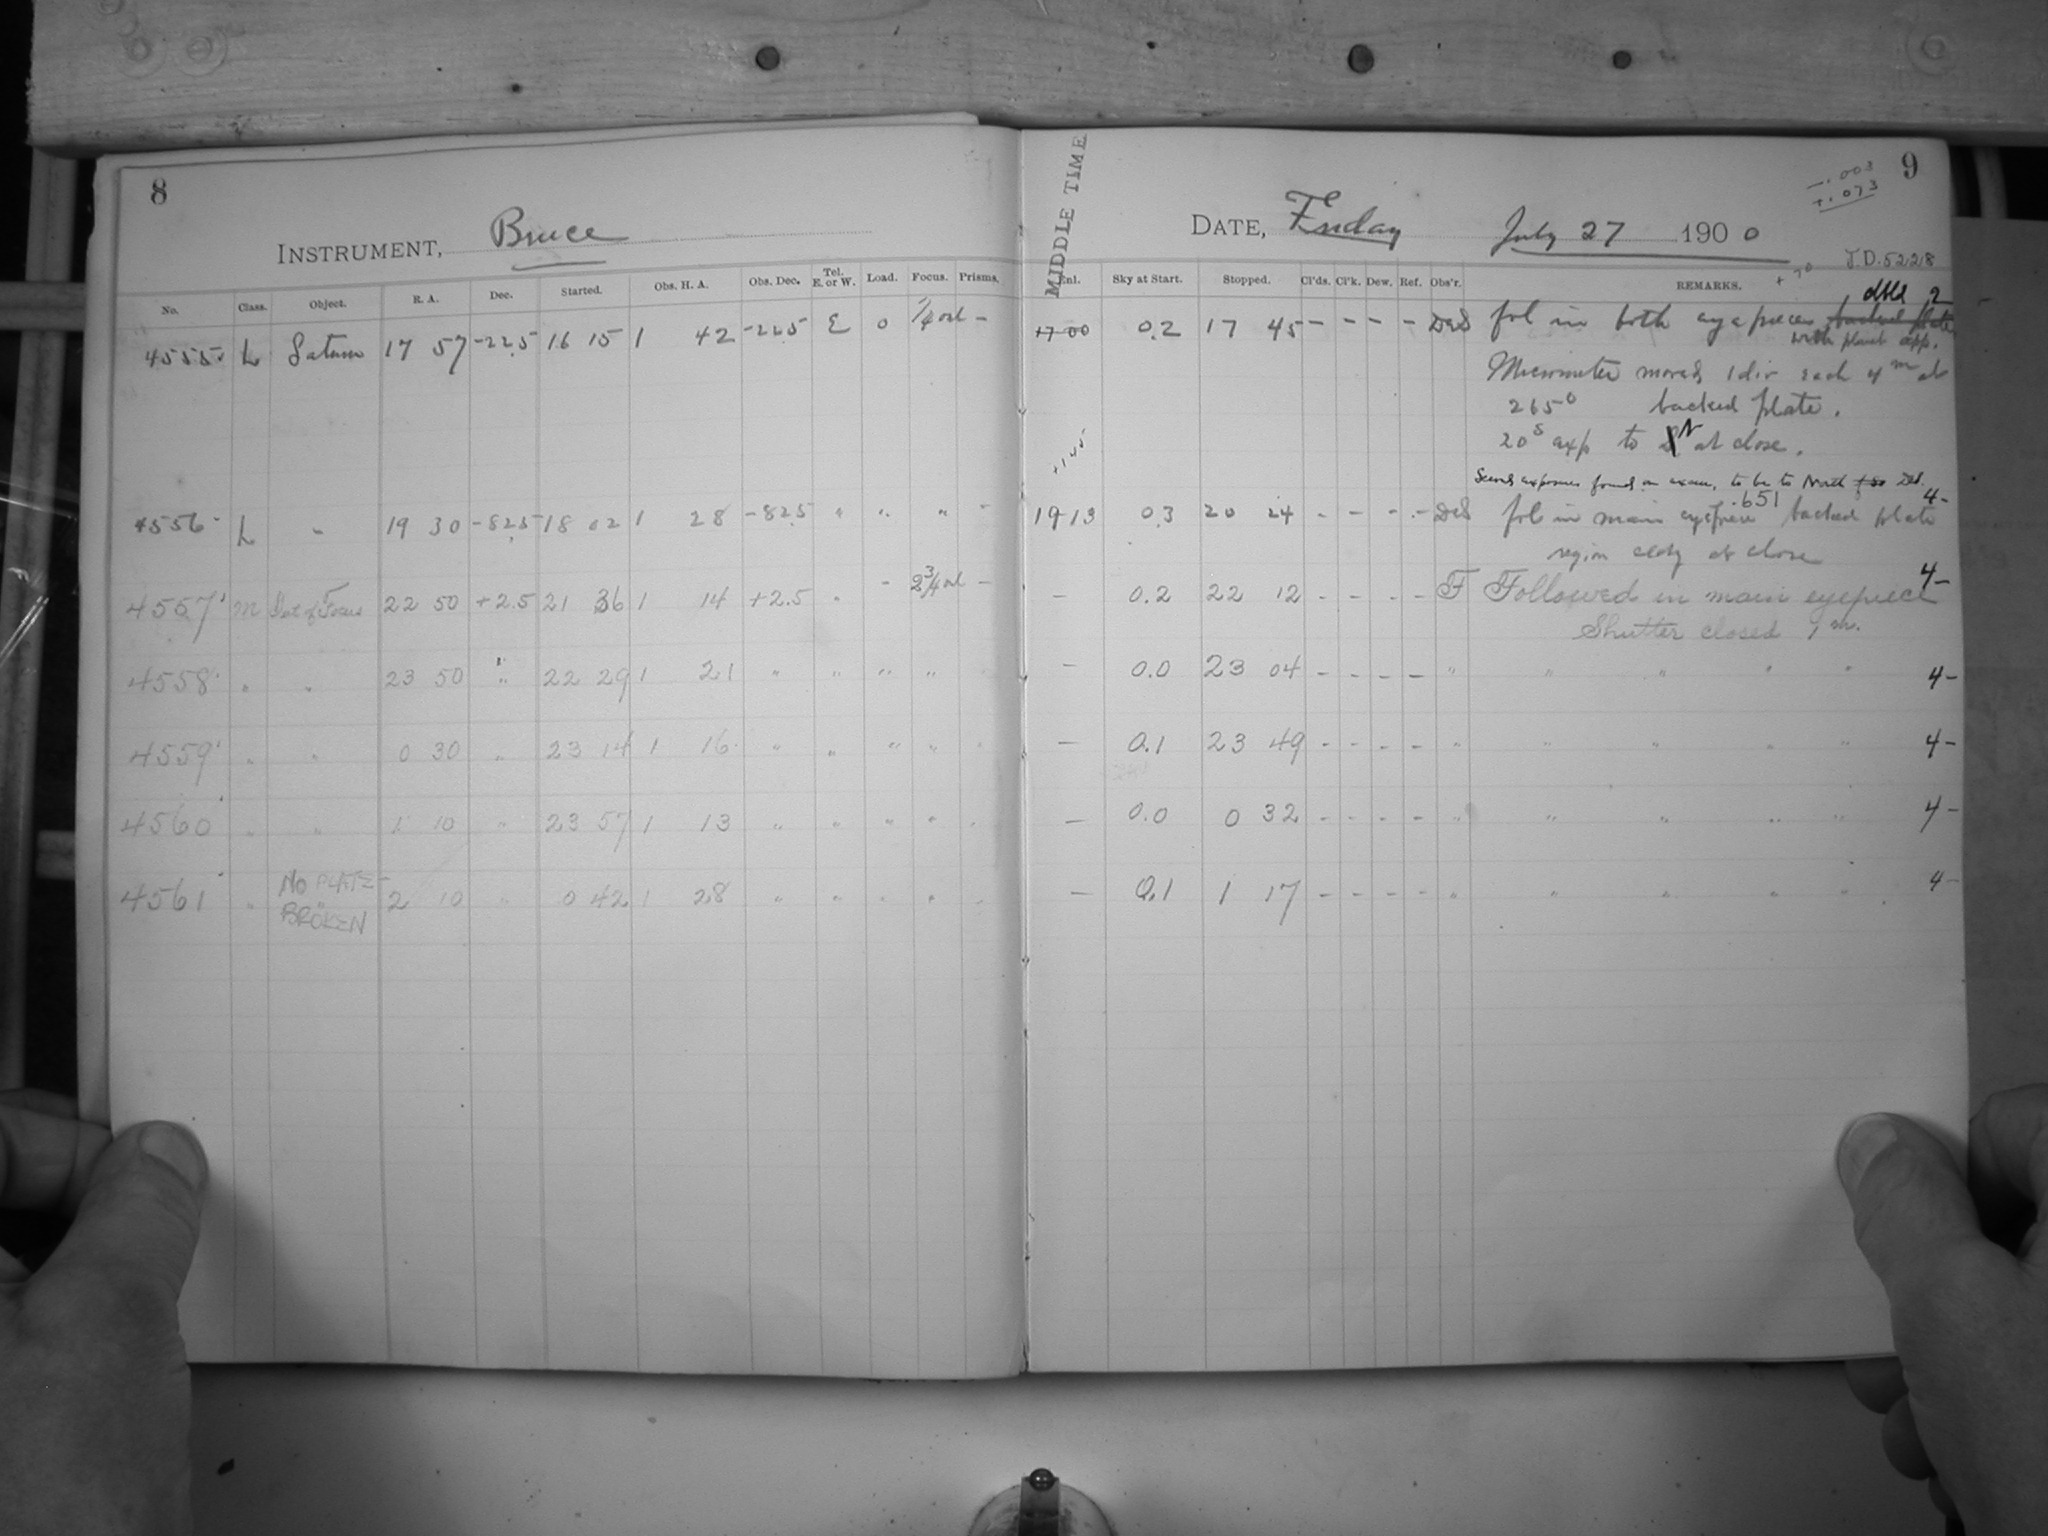 8
INSTRUMENT, Bruce
No. Class. Object. R. A. Dec. Started. Obs. H. A. Obs. Dec. Tel. E. or W. Load. Focus. Prisms.
4555 L Saturn 17 57 -22.5 16 15 1 42 -22.5 E 0 1/4 out -
4556 L " 19 30 -82.5 18 02 1 28 -82.5 " " " -
4557 M Out of Focus 22 50 +2.5 21 36 1 14 +2.5 " - 2 3/4 out -
4558 " " 23 50 " 22 29 1 21 " " " "
4559 " " 0 30 " 23 14 1 16 " " " "
4560 " " 1 10 " 23 57 1 13 " " " "
4561 " NO PLATE - BROKEN 2 10 " 0 42 1 28 " " " "
9
-.003
+.073
MIDDLE TIME
DATE, Friday July 27 1900
J.D. 5228
+70
Enl. Sky at Start. Stopped. Cl'ds. Cl'k. Dew. Ref. Obs'r. REMARKS.
17 00 0.2 17 45 - - - - DeS fol in both eyepieces backed plate dbld 2
with planet app.
Micrometer moved 1 div each 4m at
265° backed plate.
20s exp to N at close.
+145
Second exposure found on exam. to be to North
19 13 0.3 20 24 - - - - DeS fol in main eyepiece .651 backed plate 4-
region cldy at close
- 0.2 22 12 - - - - F Followed in main eyepiece 4-
Shutter closed 1m.
- 0.0 23 04 - - - - " " " " " 4-
- 0.1 23 49 - - - - " " " " " 4-
- 0.0 0 32 - - - - " " " " " 4-
- 0.1 1 17 - - - - " " " " " 4-